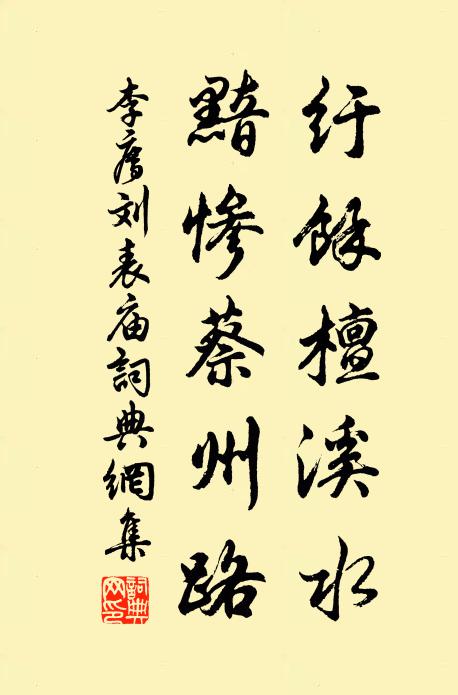 紆餘檀溪水
黯慘蔡州路
李廌刘表庙詞典網集
詞典网印